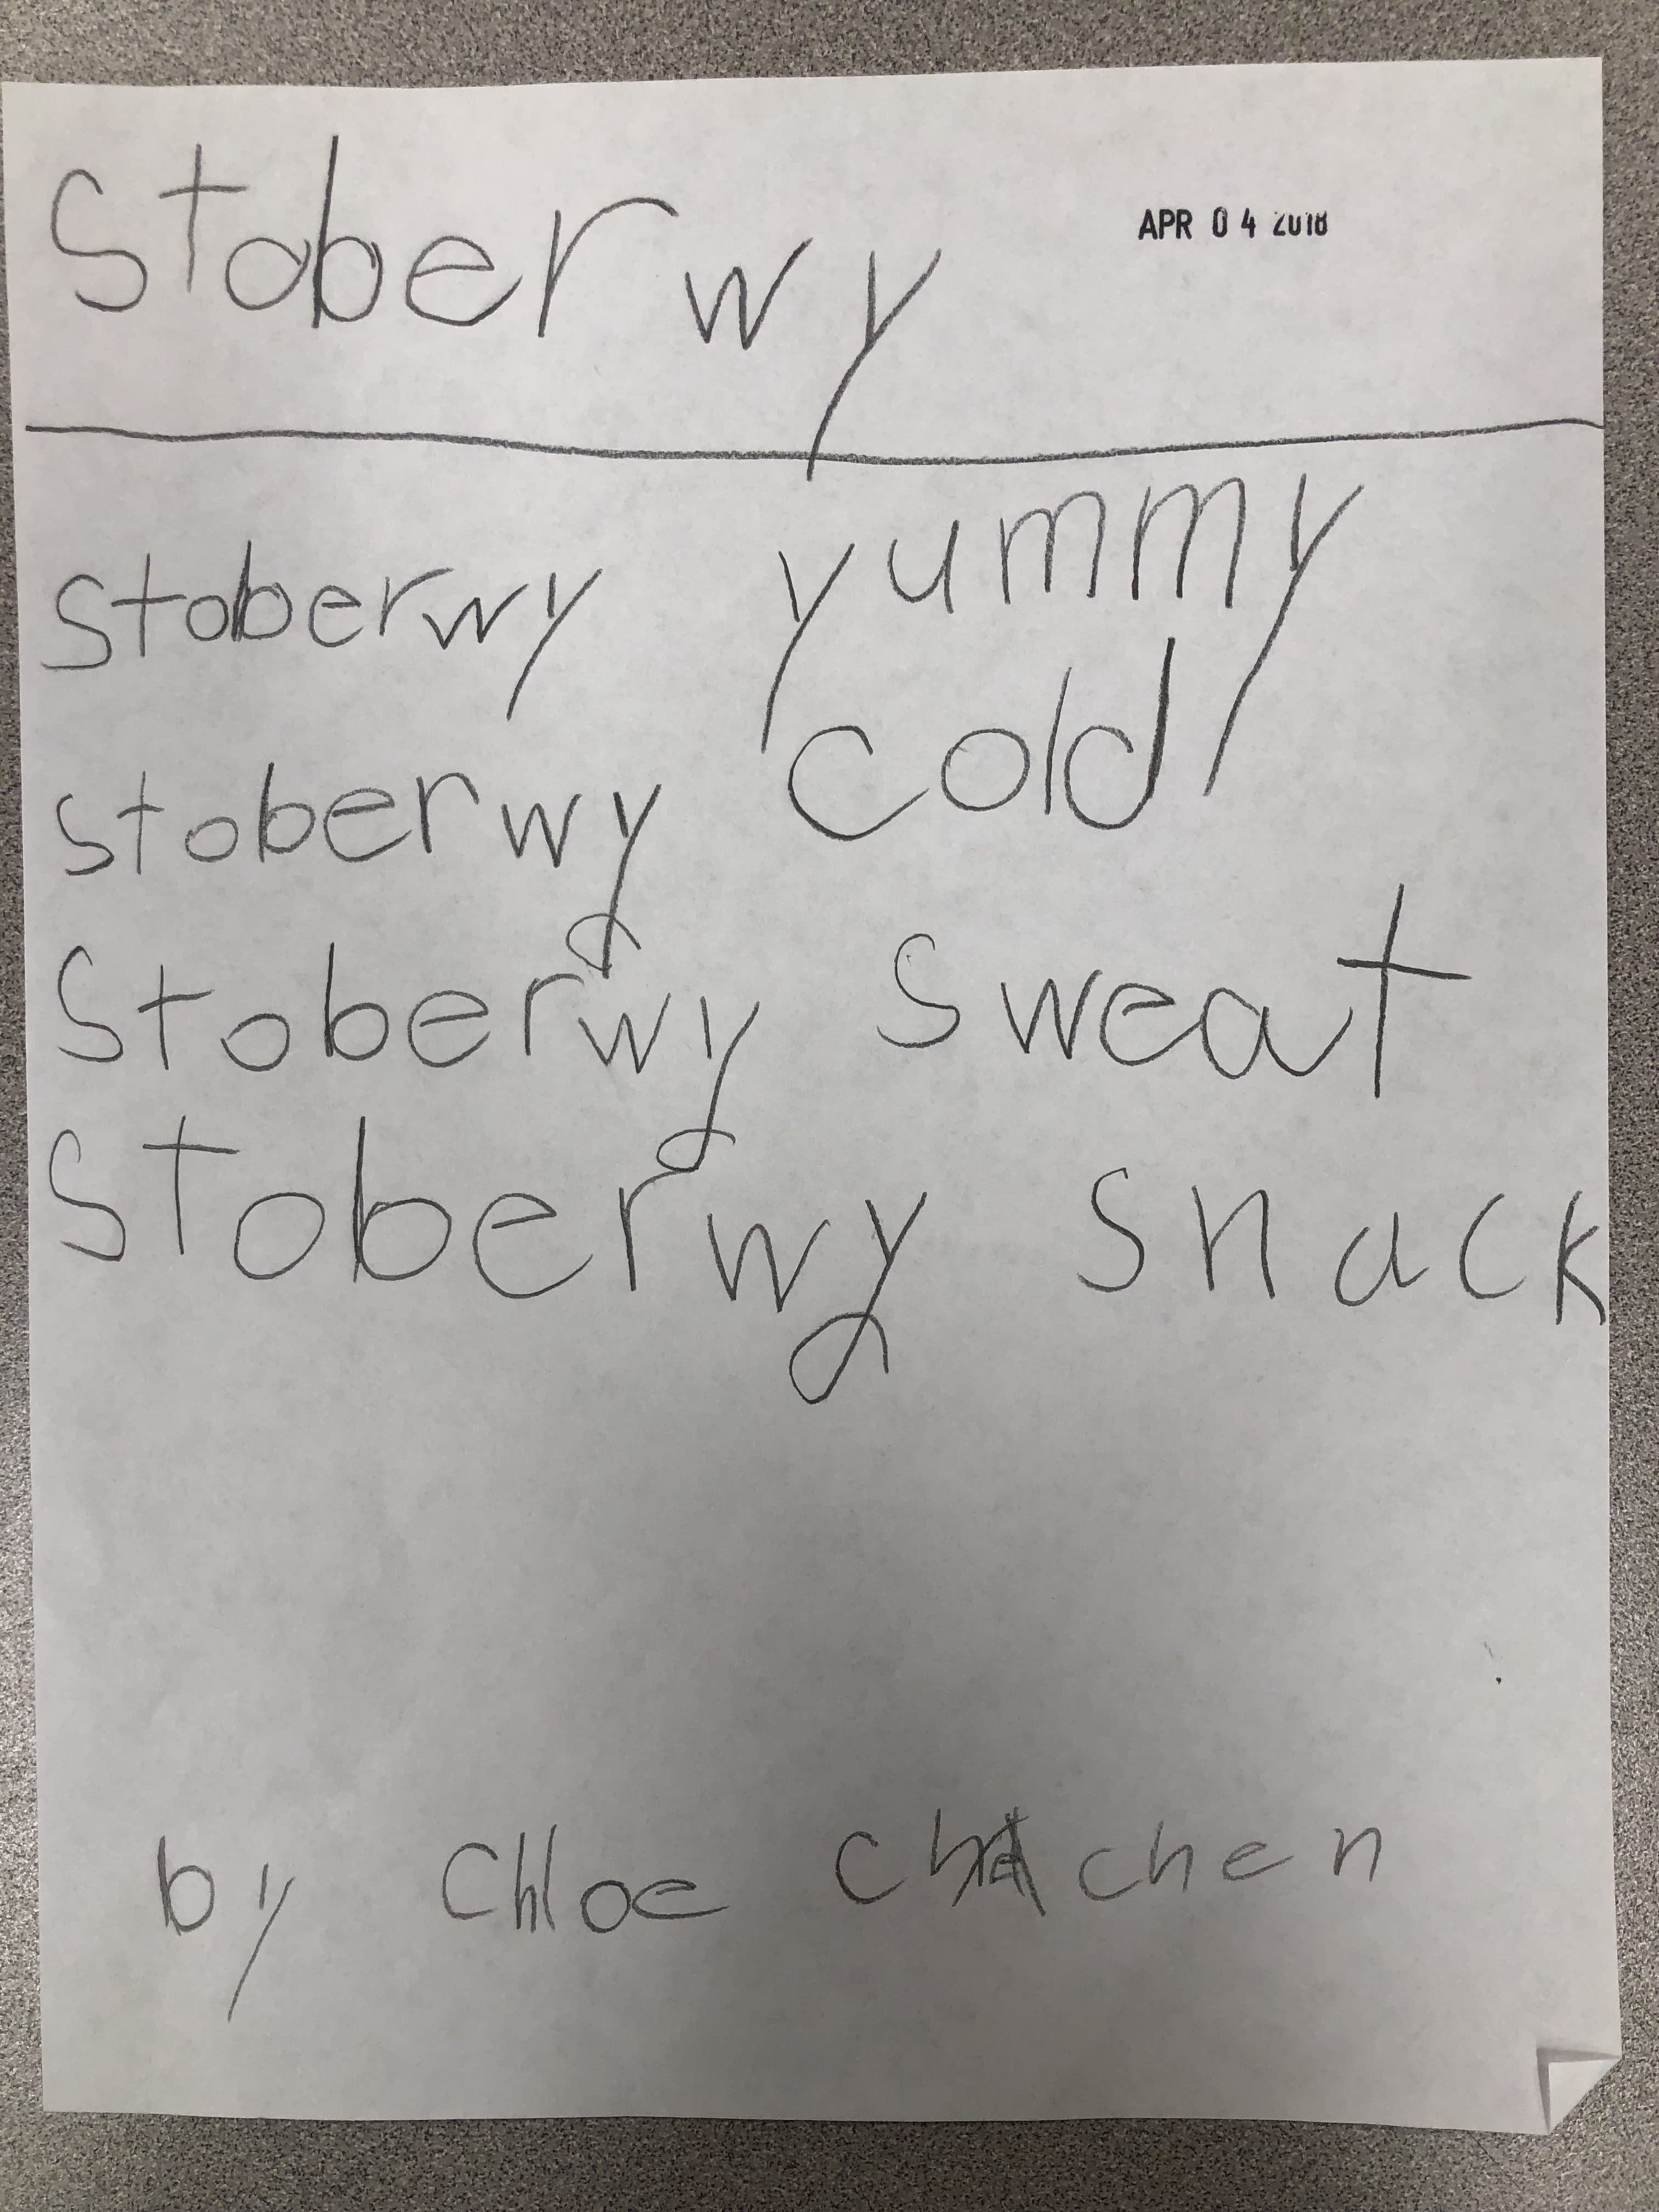 Stoberwy
APR 04 2018
stoberwy yummy
stoberwy cold
Stoberwy sweat
Stoberwy snack
by Chloe chen